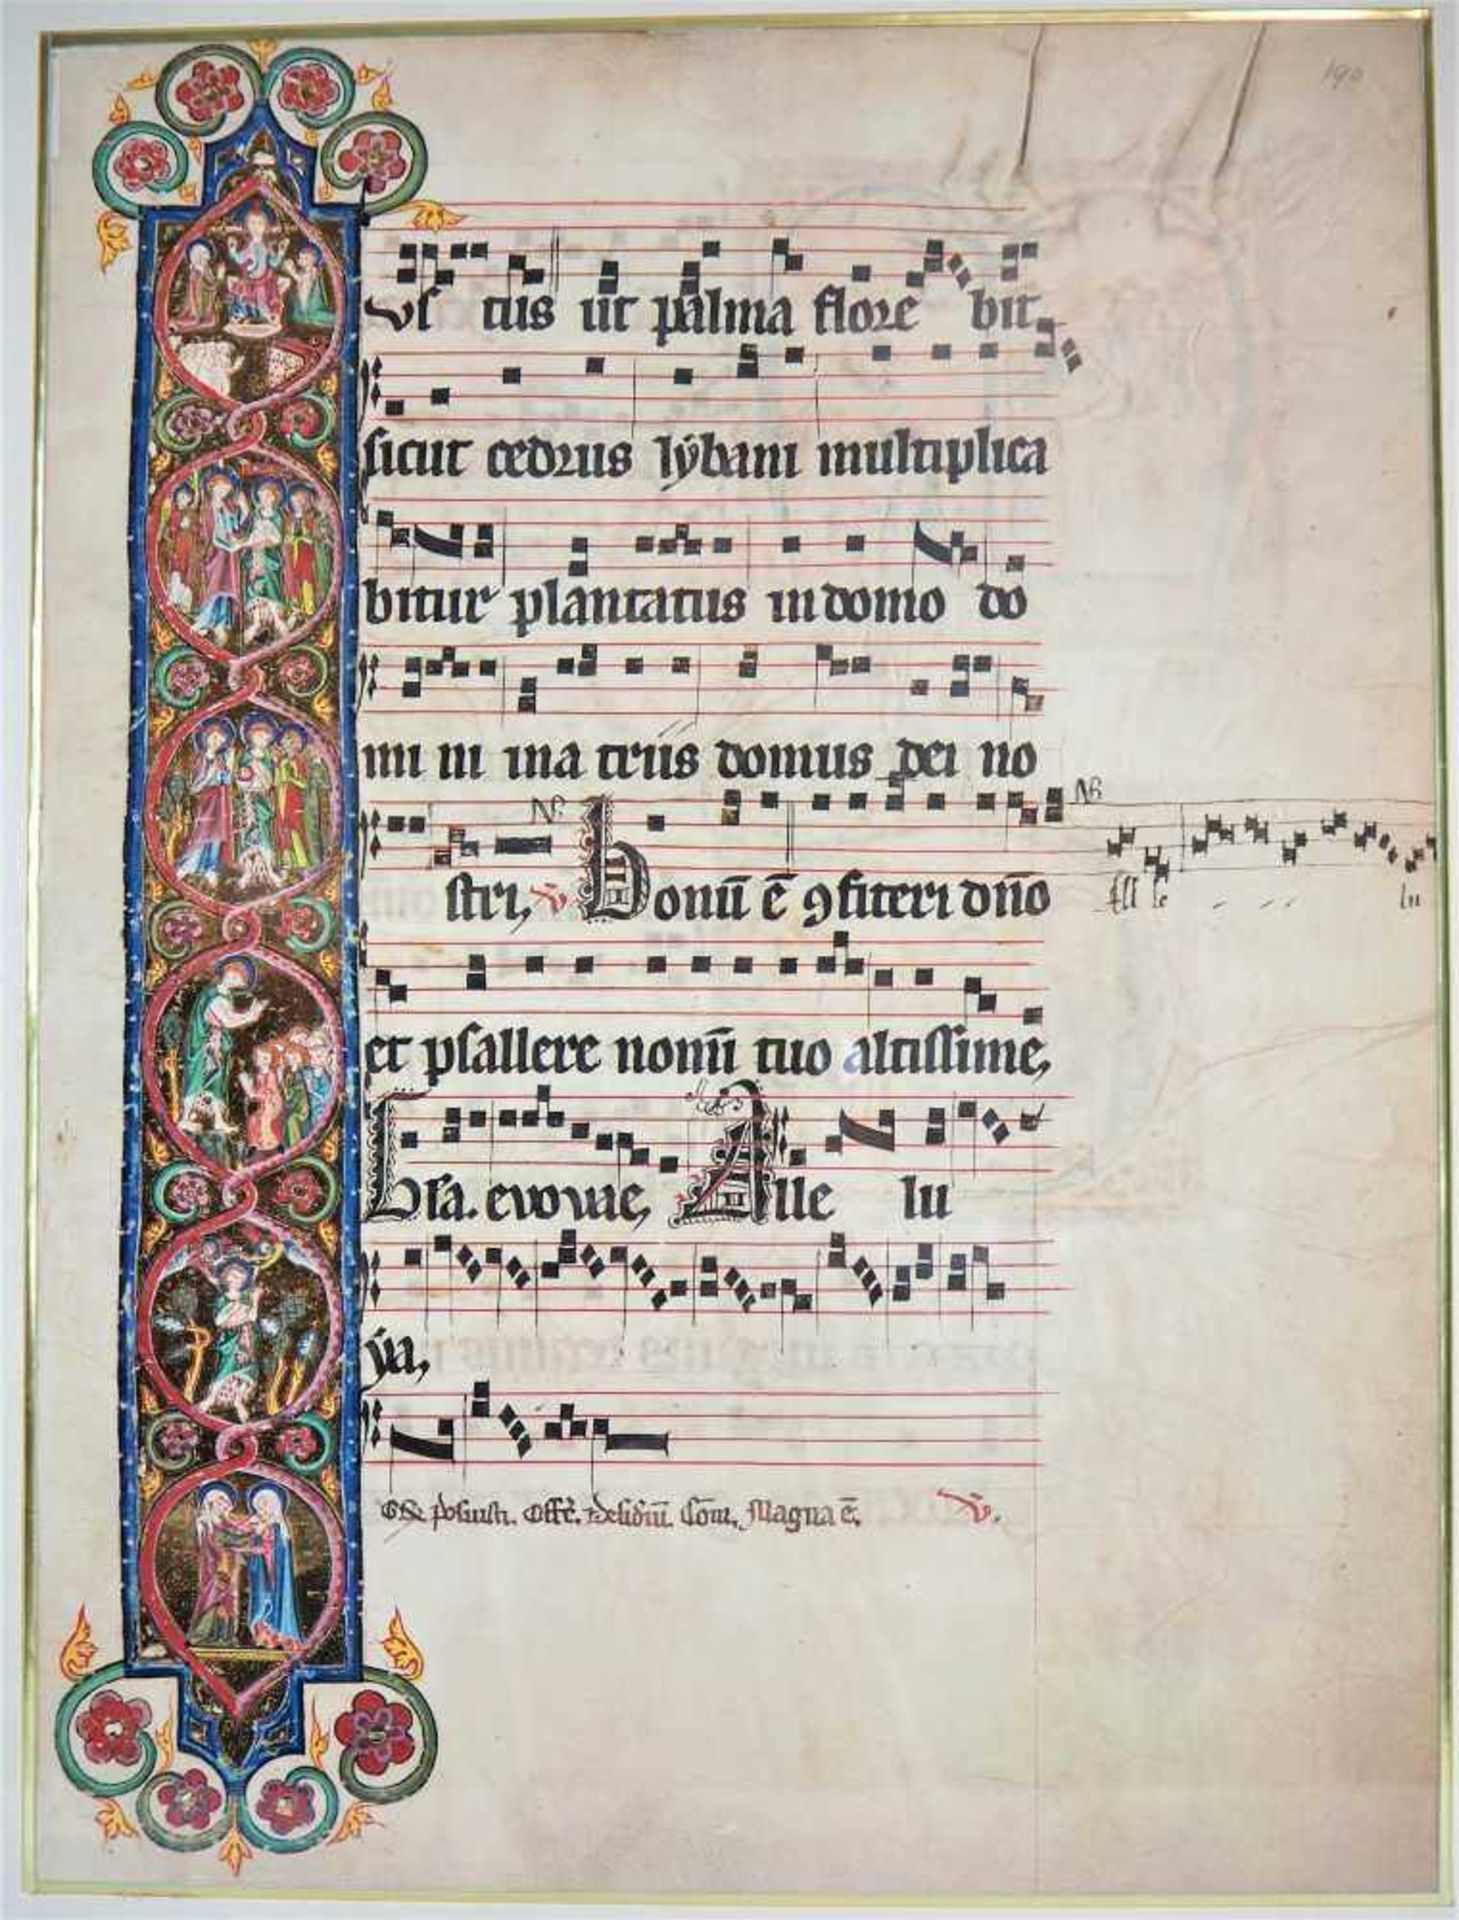 190
us tus ut palma flore bit,
sicut cedrus lÿbani multiplica
bitur plantatus in domo do
mi ni in a triis domus dei no
NB NB
stri, v̄ Bonū ē ꝯfiteri dn̄o All le - - - lu
et psallere nomī tuo altissime,
Gl̄a. evovae, Alle lu
ÿa,
Posuisti. Offr̄. Desideriū. Com̄. Magna ē. v̄.